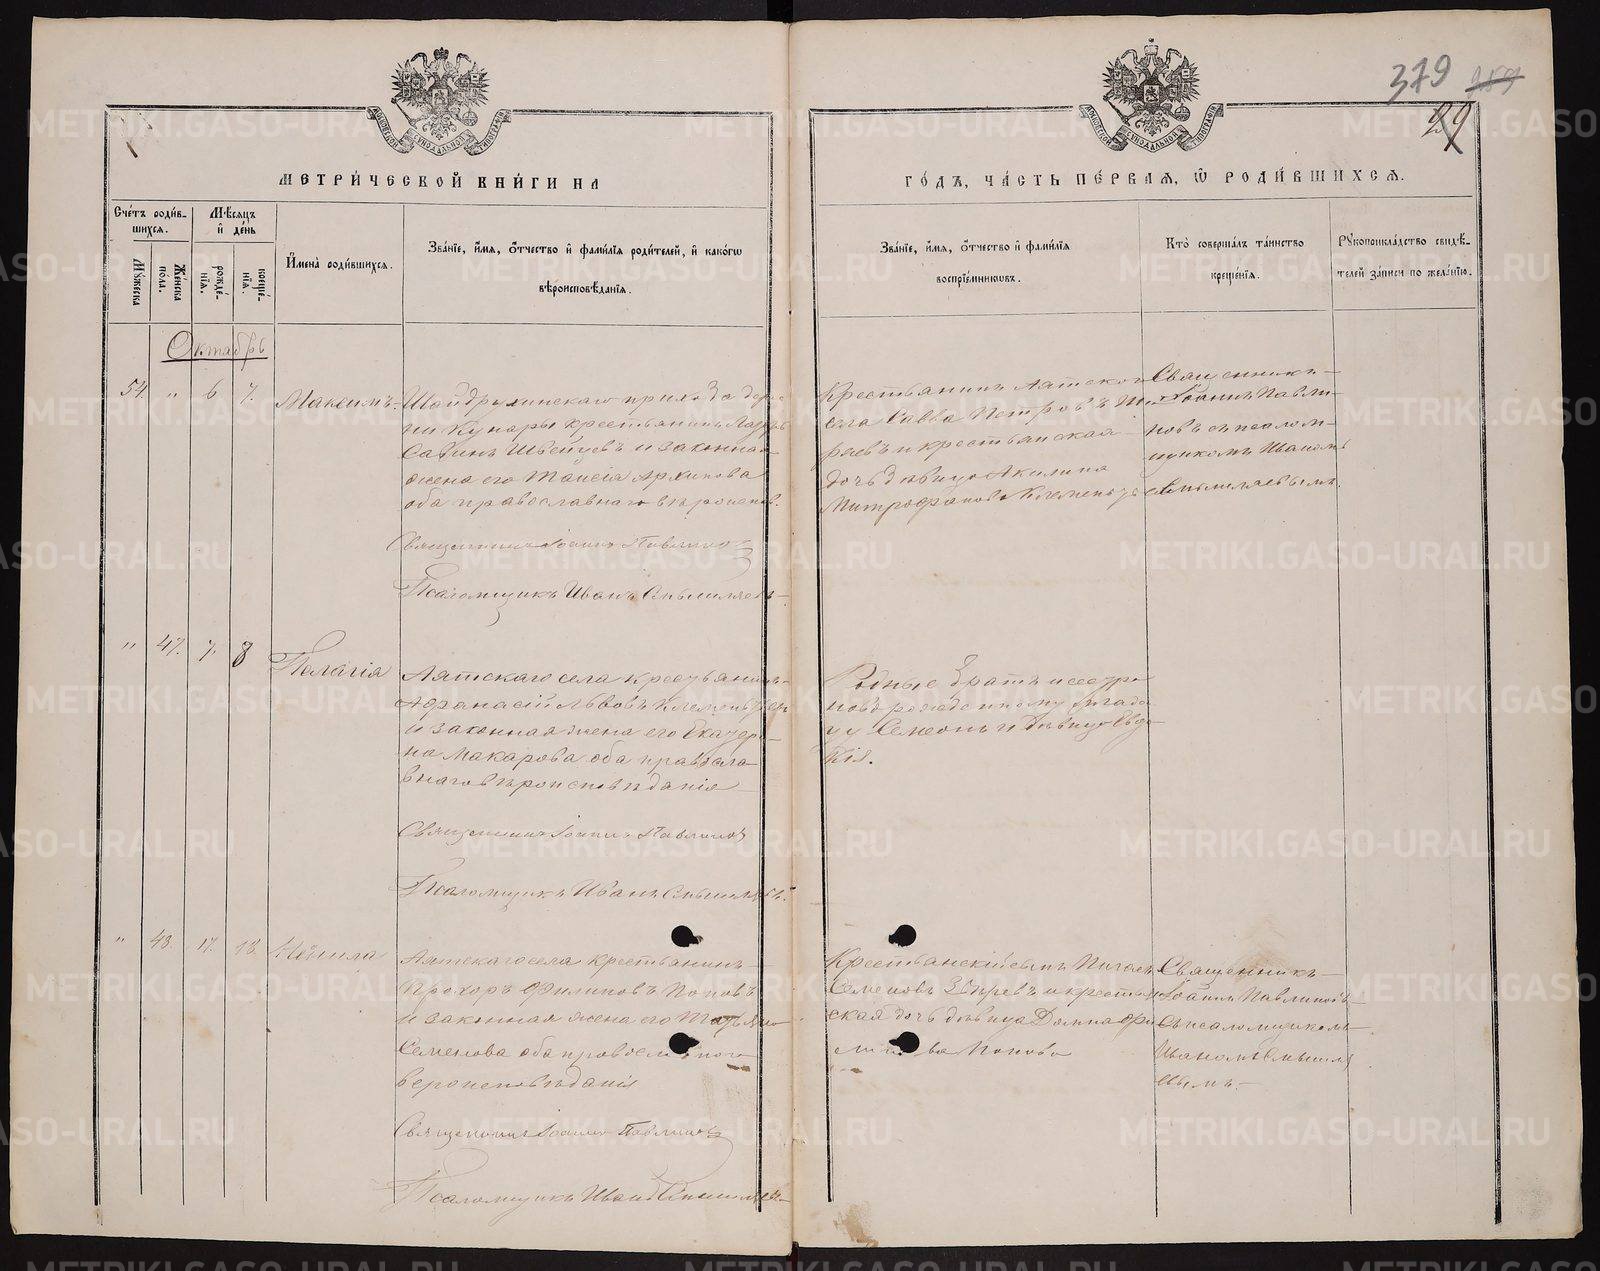 379 259
29
МЕТРИ́ЧЕСКОЙ КНИ́ГИ НА
ГО́ДЪ, ЧА́СТЬ ПЕ́РВАЯ, Ѡ РОДИ́ВШИХСЯ.
Сче́тъ роди́в-
шихся.
Мѣ́сяцъ
и́ де́нь
Му́жеска
Же́нска
по́ла.
рожде́-
нїя.
креще́-
нїя.
И҆мена̀ роди́вшихся.
Зва́нїе, и҆́мя, ѻ҆́тчество и҆ фами́лїя роди́телей, и҆ како́гѡ
вѣроисповѣ́данїя.
Зва́нїе, и҆́мя, ѻ҆́тчество и҆ фами́лїя
воспрїе́мникѡвъ.
Кто̀ соверша́лъ та́инство
креще́нїя.
Рꙋкоприкла́дство свидѣ́-
телей за́писи по жела́нїю.
Октябрь
54. " 6 7.
Максимъ.
Шайдурихинскаго прихода дерев
ни Кунары крестьянинъ
Савинъ Швецевъ и законная
жена его Таисія Архипова
оба православнаго вѣроиспов.
Священникъ Іоаннъ Павлиновъ
Псаломщикъ Иванъ Смышляевъ
Крестьянинъ Аятскаго
села Савва Петровъ
и крестьянская
дочь дѣвица Акилина
Митрофанова Клементьева
Священникъ
Іоаннъ Павли-
новъ съ псалом-
щикомъ Иваномъ
Смышляевымъ.
" 47. 7. 8
Пелагія
Аятскаго села крестьянинъ
Афанасій Львовъ Клементьевъ
и законная жена его Екатери-
на Макарова оба правосла
внаго вѣроисповѣданія
Священникъ Іоаннъ Павлиновъ
Псаломщикъ Иванъ Смышляевъ.
Родные братъ и сестра
новорожденному младен
цу Семеонъ и дѣвица Евдо
кія.
" 48. 17. 18.
Неонила
Аятскаго села крестьянинъ
Прохоръ Филиповъ Поповъ
и законная жена его Татьяна
Семенова оба православнаго
вероисповѣданія
Священникъ Іоаннъ Павлиновъ
Псаломщикъ Иванъ Смышляевъ
Крестьянскій сынъ
Семеновъ Звѣревъ и крестьян
ская дочь дѣвица Домна Фи
ва Попова
Священникъ
Іоаннъ Павлиновъ
съ псаломщикомъ
Иваномъ Смышля
евымъ.
METRIKI.GASO-URAL.RU